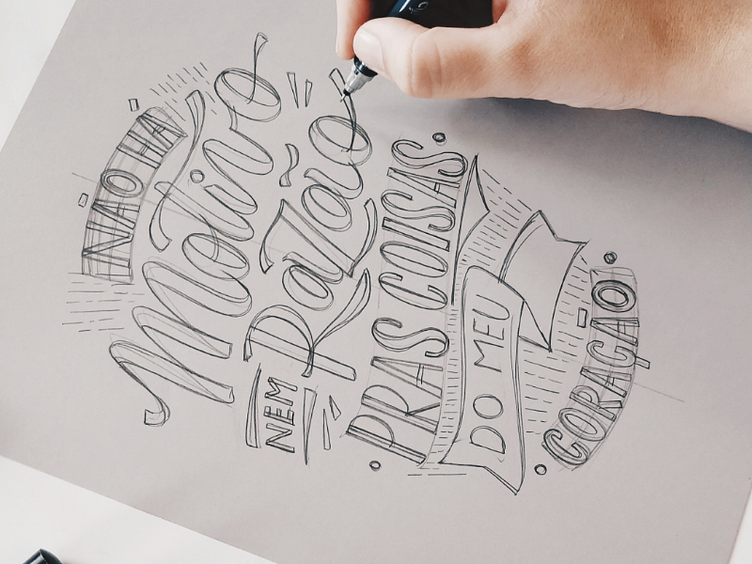 NÃO HÁ
Motivo
NEM Razão
PRAS COISAS
DO MEU
CORAÇÃO